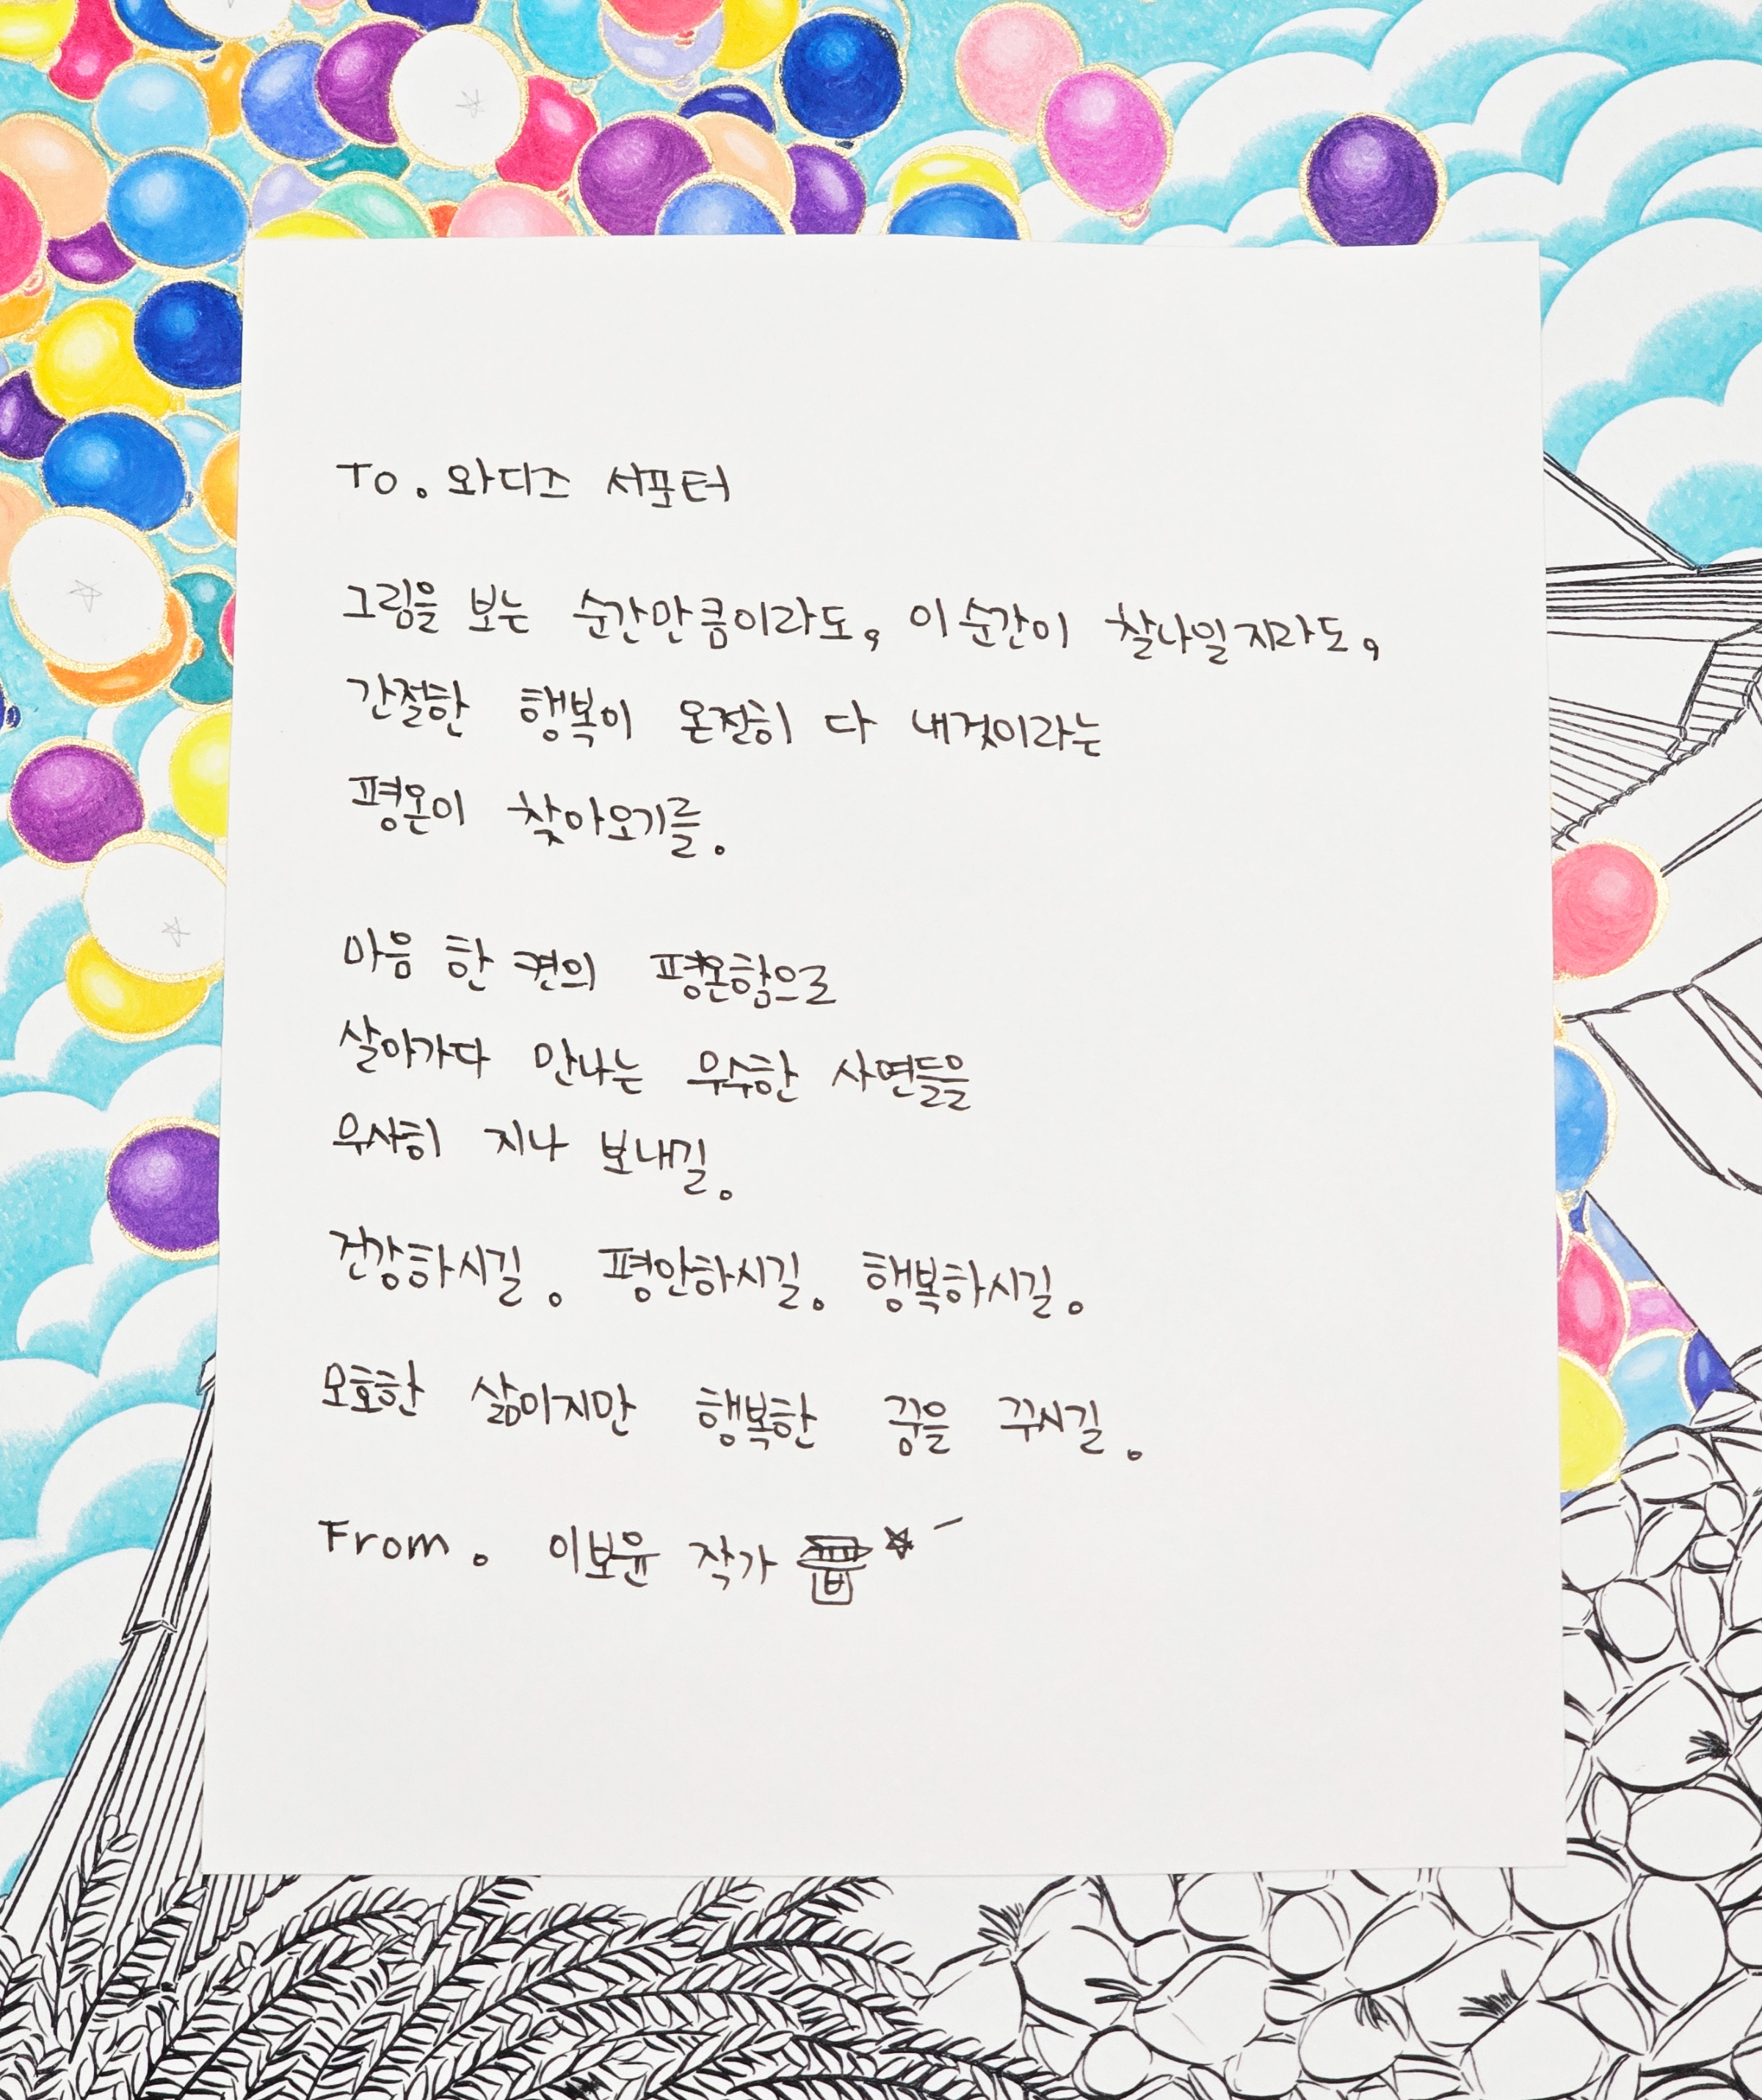 To. 와디즈 서포터
그림을 보는 순간만큼이라도, 이 순간이 찰나일지라도,
간절한 행복이 온전히 다 내것이라는
평온이 찾아오기를.
마음 한 켠의 평온함으로
살아가다 만나는 무수한 사연들을
무사히 지나 보내길.
건강하시길. 평안하시길. 행복하시길.
모호한 삶이지만 행복한 꿈을 꾸시길.
From. 이보윤 작가